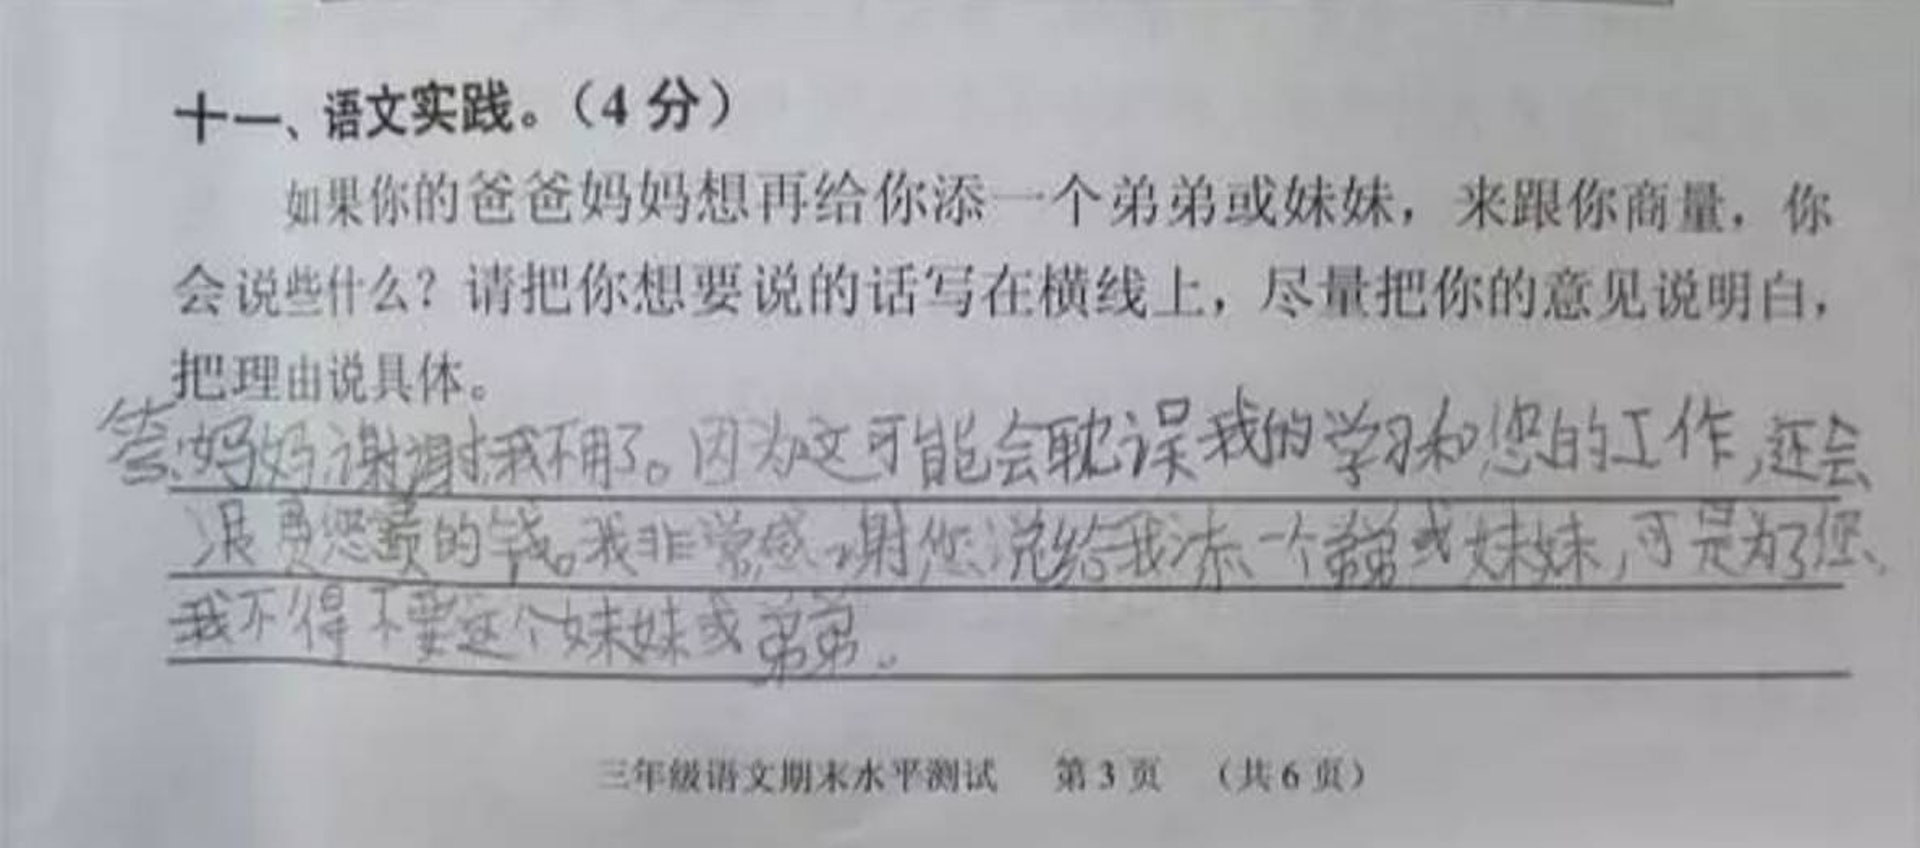 十一、语文实践。（4分）
如果你的爸爸妈妈想再给你添一个弟弟或妹妹，来跟你商量，你
会说些什么？请把你想要说的话写在横线上，尽量把你的意见说明白，
把理由说具体。
答:妈妈谢谢我不用了。因为这可能会耽误我的学习和您的工作,还会
浪费您的钱。我非常感谢您说给我添一个弟弟或妹妹,可是为了您、
我不得不要这个妹妹或弟弟。
三年级语文期末水平测试 第3页 （共6页）